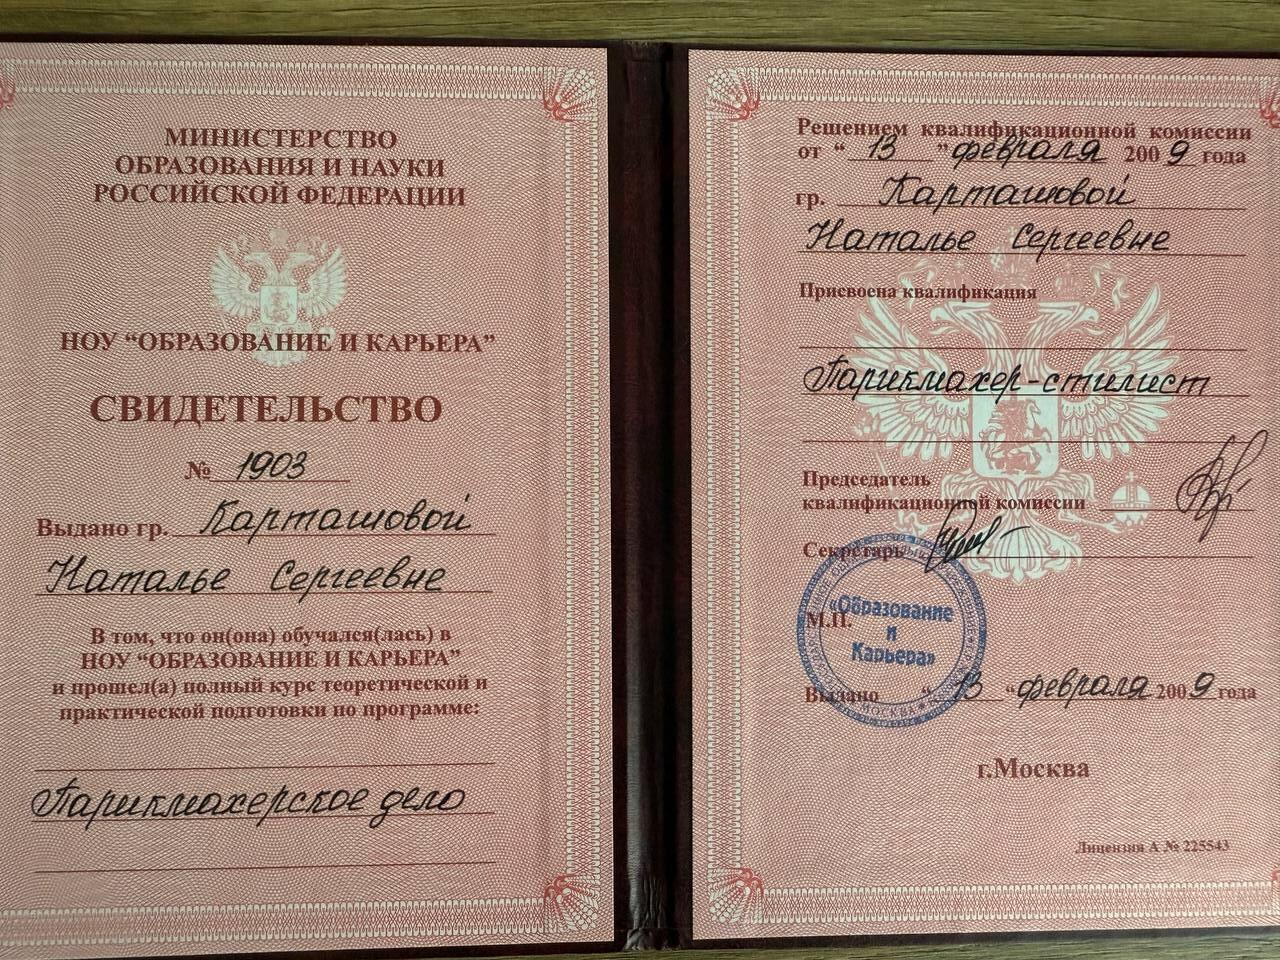 МИНИСТЕРСТВО
ОБРАЗОВАНИЯ И НАУКИ
РОССИЙСКОЙ ФЕДЕРАЦИИ
НОУ “ОБРАЗОВАНИЕ И КАРЬЕРА”
СВИДЕТЕЛЬСТВО
№ 1903
Выдано гр. Карташовой
Наталье Сергеевне
В том, что он(она) обучался(лась) в
НОУ “ОБРАЗОВАНИЕ И КАРЬЕРА”
и прошел(а) полный курс теоретической и
практической подготовки по программе:
Парикмахерское дело
Решением квалификационной комиссии
от “ 13 ” февраля 2009 года
гр. Карташовой
Наталье Сергеевне
Присвоена квалификация
Парикмахер-стилист
Председатель
квалификационной комиссии
Секретарь
«Образование
М.П. и
Карьера»
Выдано “ 13 “ февраля 2009 года
МОСКВА
г.Москва
Лицензия А № 225543